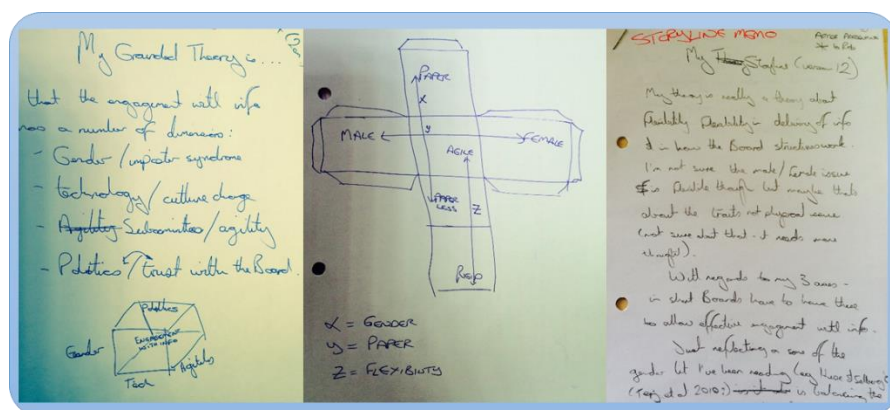 My Grounded Theory is...
that the engagement with info
has a number of dimensions:
- Gender / imposter syndrome
- technology / culture change
- Agility Subcommittees / agility
- Politics / trust with the Board.
Politics
Gender
ENGAGEMENT
WITH INFO
Agility
Tech
PAPER
x
y
MALE
FEMALE
AGILE
PAPER
LESS
Z
x = GENDER
y = PAPER
Z = FLEXIBILITY
STORYLINE MEMO
My Storyline (version 12)
My theory is really a theory about
flexibility in delivery of info
& in how the Board structures work.
I'm not sure the male / female issue
is flexible though but maybe that's
about the traits not physical
(not sure about that - it needs more
thought).
With regards to my 3 axes -
in short Boards have to have these
to allow effective engagement with info.
Just reflecting on some of the
gender lit I've been reading (eg
et al 2010;) is balancing the